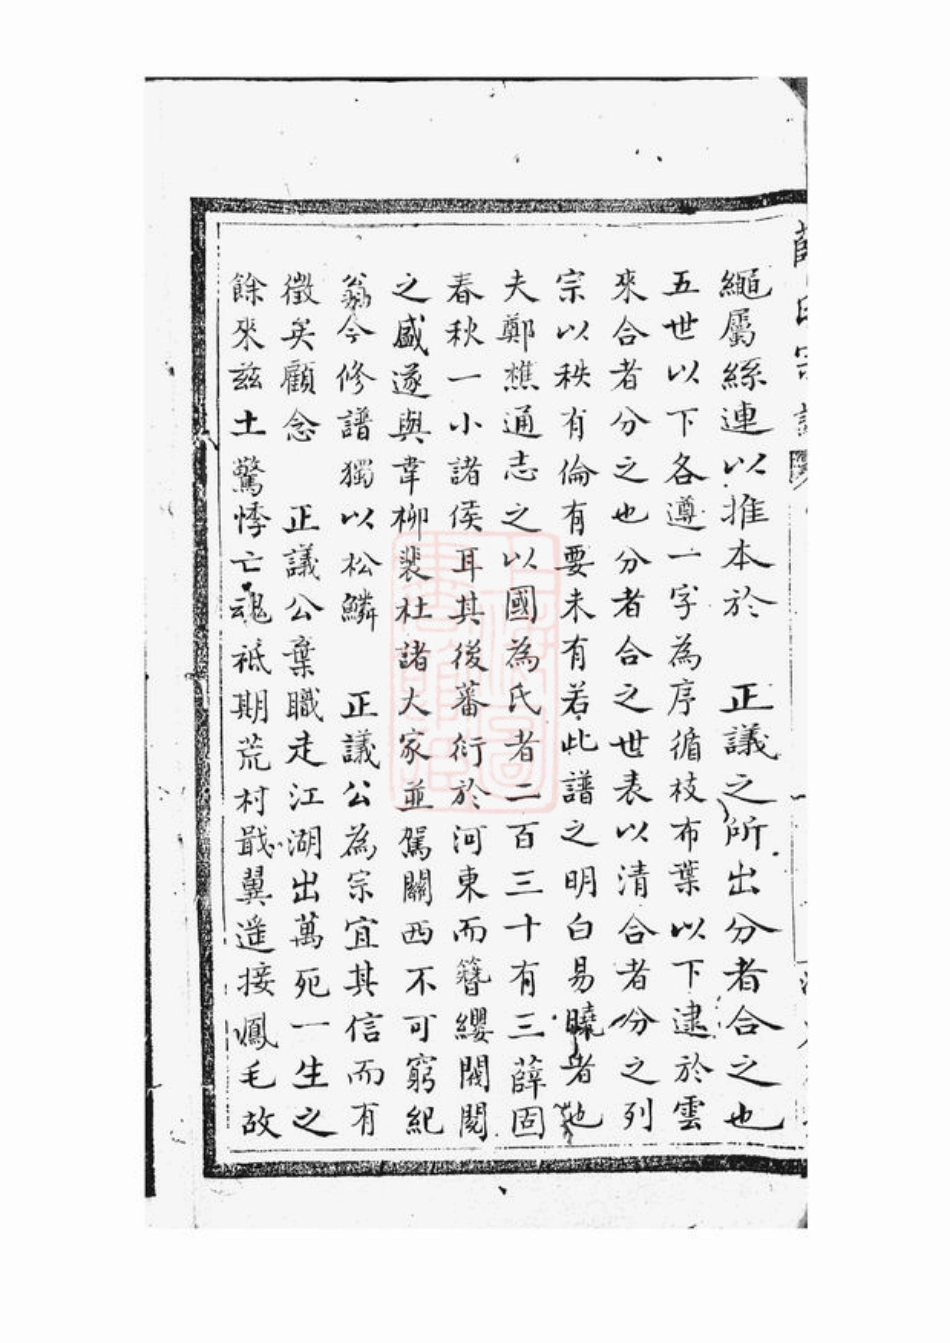 薛氏宗譜
繩屬絲連以推本於　正議之所出分者合之也
五世以下各遵一字為序循枝布葉以下逮於雲
來合者分之也分者合之世表以清合者分之列
宗以秩有倫有要未有若此譜之明白易曉者也
夫鄭樵通志之以國為氏者二百三十有三薛固
春秋一小諸侯耳其後蕃衍於河東而簪纓閥閱
之盛遂與韋柳裴杜諸大家並駕關西不可窮紀
翁今修譜獨以松鱗　正議公為宗宜其信而有
徵矣顧念　正議公棄職走江湖出萬死一生之
餘來茲土驚悸亡魂祇期荒村戢翼遥接鳳毛故